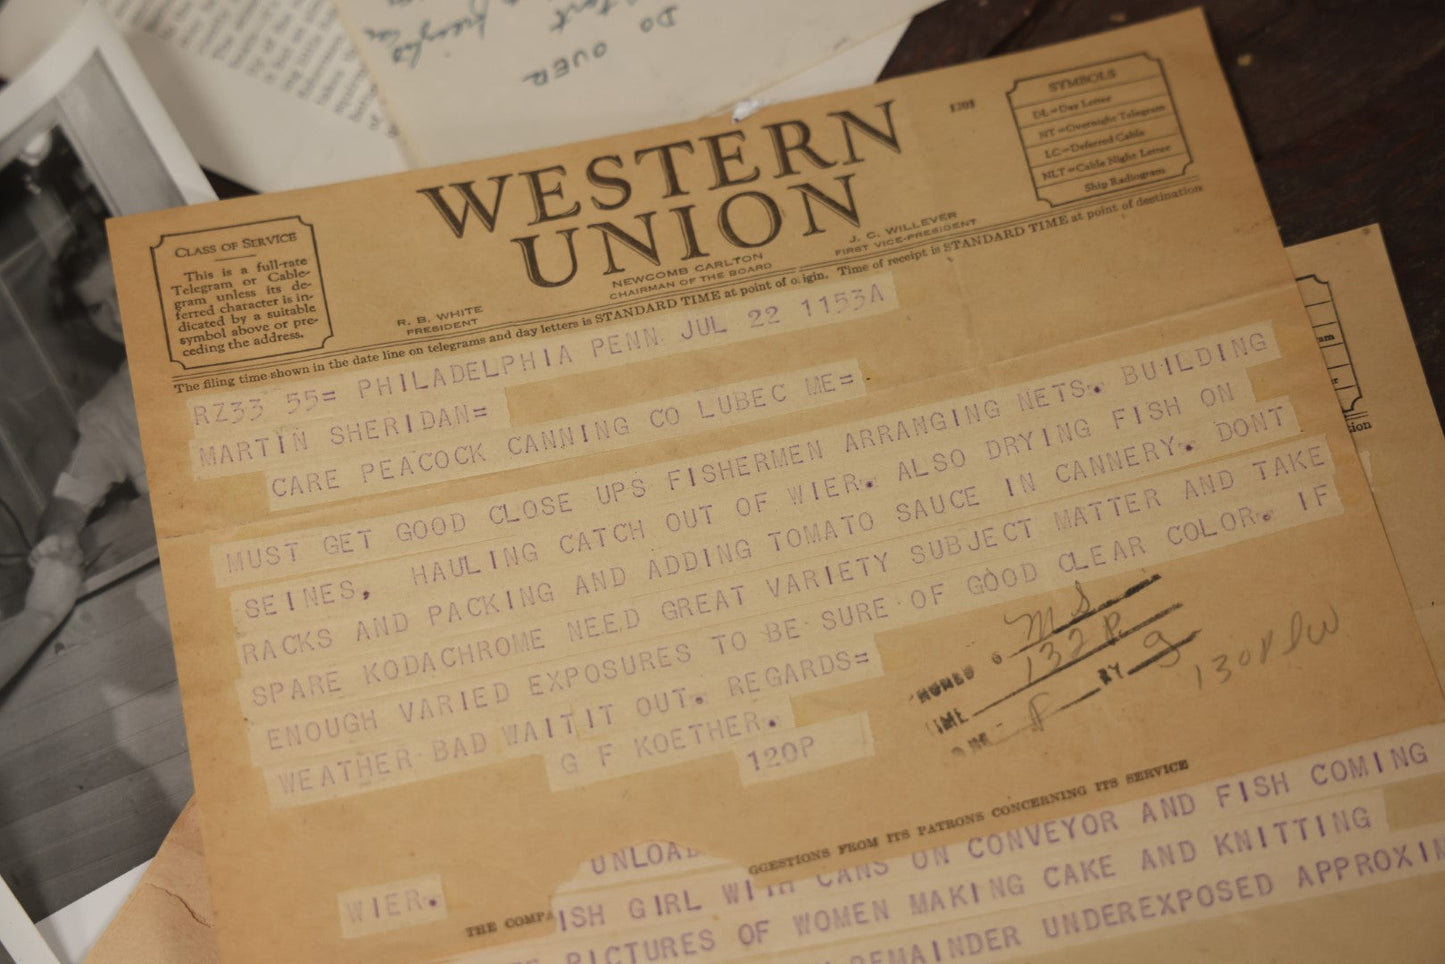 DO OVER
WESTERN
UNION
1201
CLASS OF SERVICE
This is a full-rate
Telegram or Cable-
gram unless its de-
ferred character is in-
dicated by a suitable
symbol above or pre-
ceding the address.
R. B. WHITE
PRESIDENT
NEWCOMB CARLTON
CHAIRMAN OF THE BOARD
J. C. WILLEVER
FIRST VICE-PRESIDENT
SYMBOLS
DL=Day Letter
NT=Overnight Telegram
LC=Deferred Cable
NLT=Cable Night Letter
Ship Radiogram
The filing time shown in the date line on telegrams and day letters is STANDARD TIME at point of origin. Time of receipt is STANDARD TIME at point of destination
RZ33 55= PHILADELPHIA PENN JUL 22 1153A
MARTIN SHERIDAN=
CARE PEACOCK CANNING CO LUBEC ME=
MUST GET GOOD CLOSE UPS FISHERMEN ARRANGING NETS. BUILDING
SEINES, HAULING CATCH OUT OF WIER. ALSO DRYING FISH ON
RACKS AND PACKING AND ADDING TOMATO SAUCE IN CANNERY. DONT
SPARE KODACHROME NEED GREAT VARIETY SUBJECT MATTER AND TAKE
ENOUGH VARIED EXPOSURES TO BE SURE OF GOOD CLEAR COLOR. IF
WEATHER BAD WAITIT OUT. REGARDS=
G F KOETHER.
120P
MS
132P
BY
WIER.
UNLOAD
THE COMPA
GGESTIONS FROM ITS PATRONS CONCERNING ITS SERVICE
ISH GIRL WITH CANS ON CONVEYOR AND FISH COMING
PICTURES OF WOMEN MAKING CAKE AND KNITTING
REMAINDER UNDEREXPOSED APPROXIM
am
ion